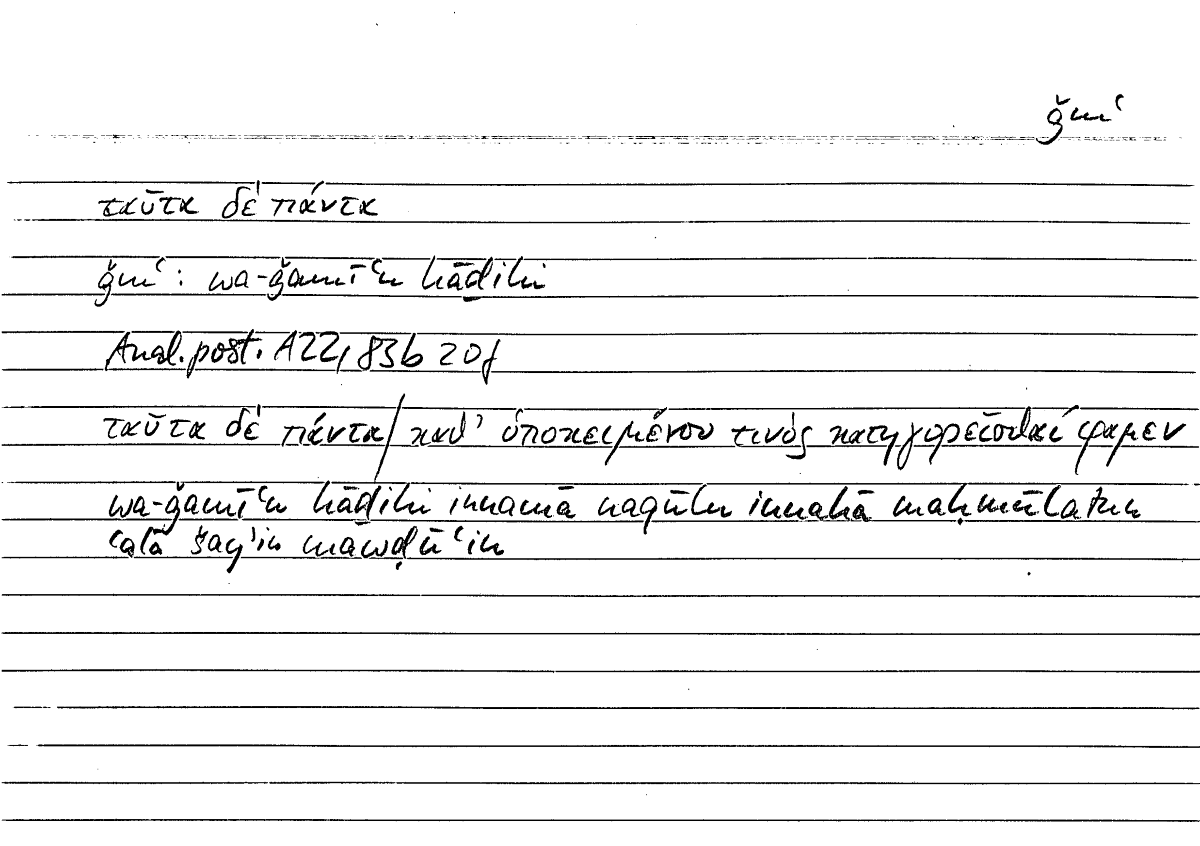 ǧmʿ
ταῦτα δὲ πάντα
ǧmʿ: wa-ǧamīʿu hāḏihi
Anal. post. A22, 83b 20f
ταῦτα δὲ πάντα/ καθ' ὑποκειμένου τινὸς κατηγορεῖσθαί φαμεν
wa-ǧamīʿu hāḏihi innamā naqūlu innahā maḥmūlatun
ʿalā šayʾin mawḍūʿin